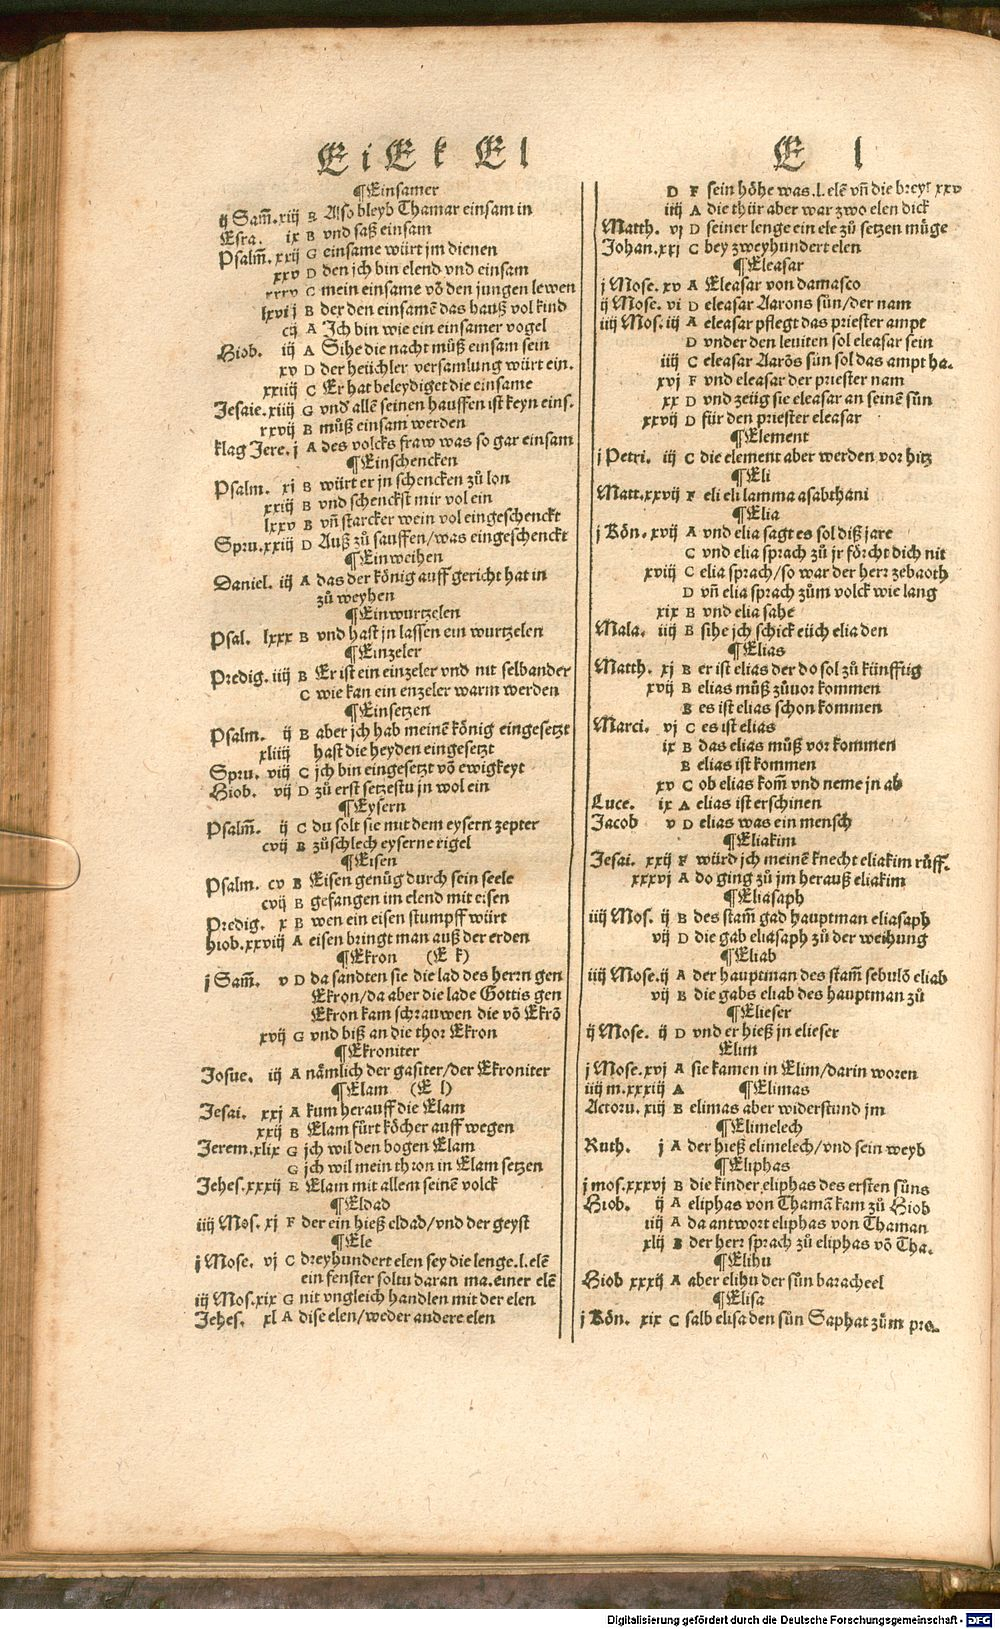 Ei Ek El
¶Einsamer
ij Sam̃. xiij B Also bleyb Thamar einsam in
Esra. ix B vnd saß einsam
Psalm̃. xxij G einsame würt jm dienen
xxv D den jch bin elend vnd einsam
xxxv C mein einsame võ den jungen lewen
lxvij B der den einsamẽ das hauß vol kind
cij A Ich bin wie ein einsamer vogel
Hiob. iij A Sihe die nacht můß einsam sein
xv D der heüchler versamlung würt ein.
xxiiij C Er hat beleydiget die einsame
Jesaie. xiiij G vnd allẽ seinen hauffen ist keyn eins.
xxvij B můß einsam werden
klag Jere. j A des volcks fraw was so gar einsam
¶Einschencken
Psalm. xj B würt er jn schencken zů lon
xxiij B vnd schenckst mir vol ein
lxxv B vñ starcker wein vol eingeschenckt
Spru. xxiij D Auß zů sauffen/was eingeschenckt
¶Einweihen
Daniel. iij A das der könig auff gericht hat in
zů weyhen
¶Einwurtzelen
Psal. lxxx B vnd hast jn lassen ein wurtzelen
¶Einzeler
Predig. iiij B Er ist ein einzeler vnd nit selbander
C wie kan ein enzeler warm werden
¶Einsetzen
Psalm. ij B aber jch hab meinẽ könig eingesetzt
xliiij hast die heyden eingesetzt
Spru. viij C jch bin eingesetzt võ ewigkeyt
Hiob. vij D zů erst setzestu jn wol ein
¶Eysern
Psalm̃. ij C du solt sie mit dem eysern zepter
cvij B zůschlech eyserne rigel
¶Eisen
Psalm. cv B Eisen genůg durch sein seele
cvij B gefangen im elend mit eisen
Predig. x B wen ein eisen stumpff würt
hiob. xxviij A eisen bringt man auß der erden
¶Ekron (E k)
j Sam̃. v D da sandten sie die lad des herrn gen
Ekron/da aber die lade Gottis gen
Ekron kam schrauwen die võ Ekrõ
xvij G vnd biß an die thor Ekron
¶Ekroniter
Josue. iij A nämlich der gasiter/der Ekroniter
¶Elam (E l)
Jesai. xxj A kum herauff die Elam
xxij B Elam fürt köcher auff wegen
Jerem. xlix G jch wil den bogen Elam
G jch wil mein thron in Elam setzen
Jehes. xxxij E Elam mit allem seinẽ volck
¶Eldad
iiij Mos. xj F der ein hieß eldad/vnd der geyst
¶Ele
j Mose. vj C dreyhundert elen sey die lenge.l.elẽ
ein fenster soltu daran ma.einer elẽ
iij Mos. xix G nit vngleich handlen mit der elen
Jehes. xl A dise elen/weder andere elen
E l
D F sein höhe was.l.elẽ vñ die breyt xxv
iiij A die thür aber war zwo elen dick
Matth. vj D seiner lenge ein ele zů setzen müge
Johan. xxj C bey zweyhundert elen
¶Eleasar
j Mose. xv A Eleasar von damasco
ij Mose. vi D eleasar Aarons sün/der nam
iiij Mos. iij A eleasar pflegt das priester ampt
D vnder den leuiten sol eleasar sein
iiij C eleasar Aarõs sün sol das ampt ha.
xvj F vnd eleasar der priester nam
xx D vnd zeüg sie eleasar an seinẽ sün
xxvij D für den priester eleasar
¶Element
j Petri. iij C die element aber werden vor hitz
¶Eli
Matt. xxvij F eli eli lamma asabthani
¶Elia
j Kön. xvij A vnd elia sagt es sol diß jare
C vnd elia sprach zů jr förcht dich nit
xviij C elia sprach/so war der herr zebaoth
D vñ elia sprach zům volck wie lang
xix B vnd elia sahe
Mala. iiij B sihe jch schick eüch elia den
¶Elias
Matth. xj B er ist elias der do sol zů künfftig
xvij B elias můß zůuor kommen
B es ist elias schon kommen
Marci. vj C es ist elias
ix B das elias můß vor kommen
B elias ist kommen
xv C ob elias kom̃ vnd neme jn ab
Luce. ix A elias ist erschinen
Jacob v D elias was ein mensch
¶Eliakim
Jesai. xxij F würd jch meinẽ knecht eliakim růff.
xxxvj A do ging zů jm herauß eliakim
¶Eliasaph
iiij Mos. ij B des stam̃ gad hauptman eliasaph
vij D die gab eliasaph zů der weihung
¶Eliab
iiij Mose. ij A der hauptman des stam̃ sebulõ eliab
vij B die gabs eliab des hauptman zů
¶Elieser
ij Mose. ij D vnd er hieß jn elieser
Elim
j Mose. xvj A sie kamen in Elim/darin woren
iiij m. xxxiij A ¶Elimas
Actoru. xiij B elimas aber widerstund jm
¶Elimelech
Ruth. j A der hieß elimelech/vnd sein weyb
¶Eliphas
j mos. xxxvj B die kinder eliphas des ersten süns
Hiob. ij A eliphas von Thamã kam zů Hiob
iiij A da antwort eliphas von Thaman
xlij B der herr sprach zů eliphas võ Tha.
¶Elihu
Hiob xxxij A aber elihu der sün baracheel
¶Elisa
j Kön. xix C salb elisa den sün Saphat zům pro.
Digitalisierung gefördert durch die Deutsche Forschungsgemeinschaft - DFG